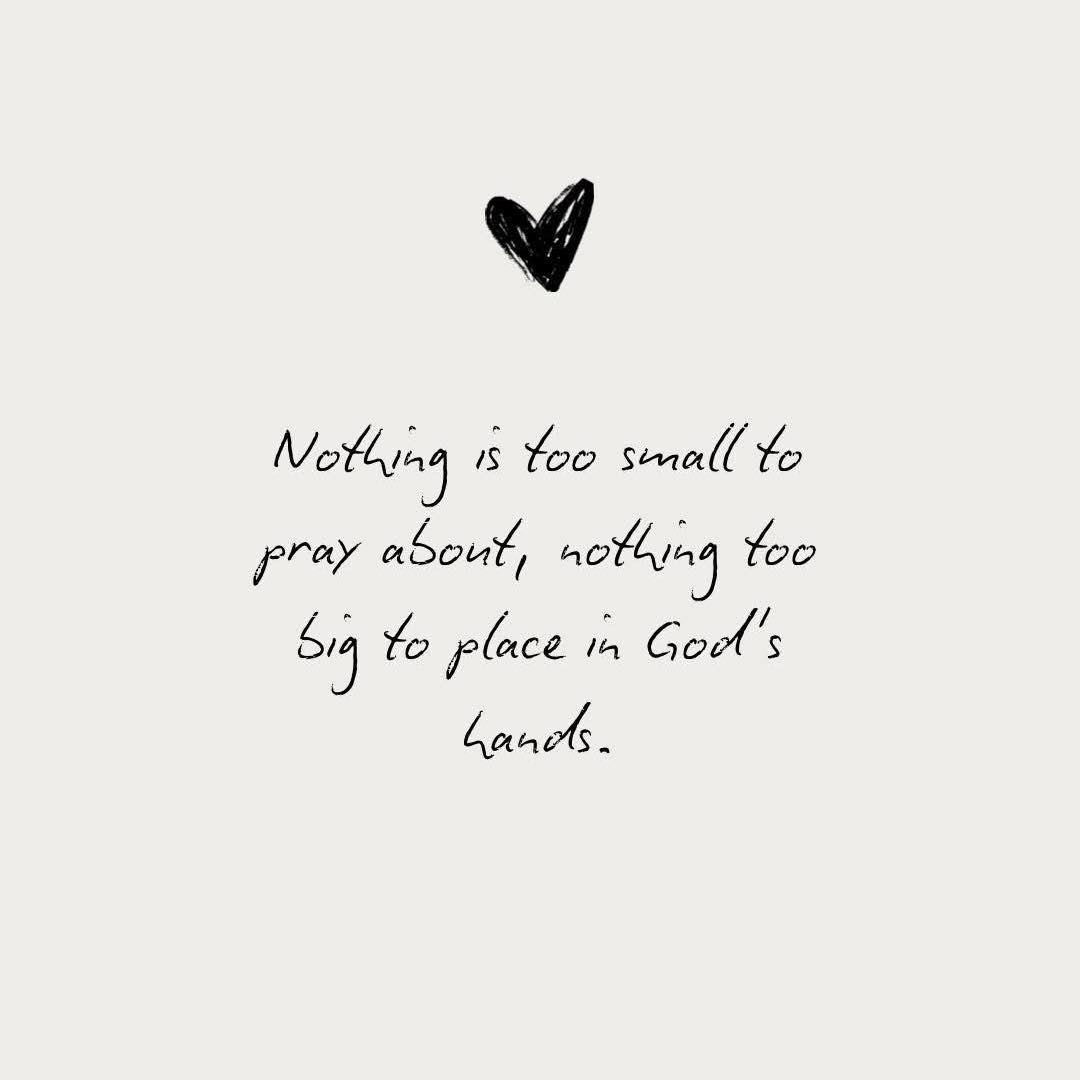 Nothing is too small to
pray about, nothing too
big to place in God's
hands.